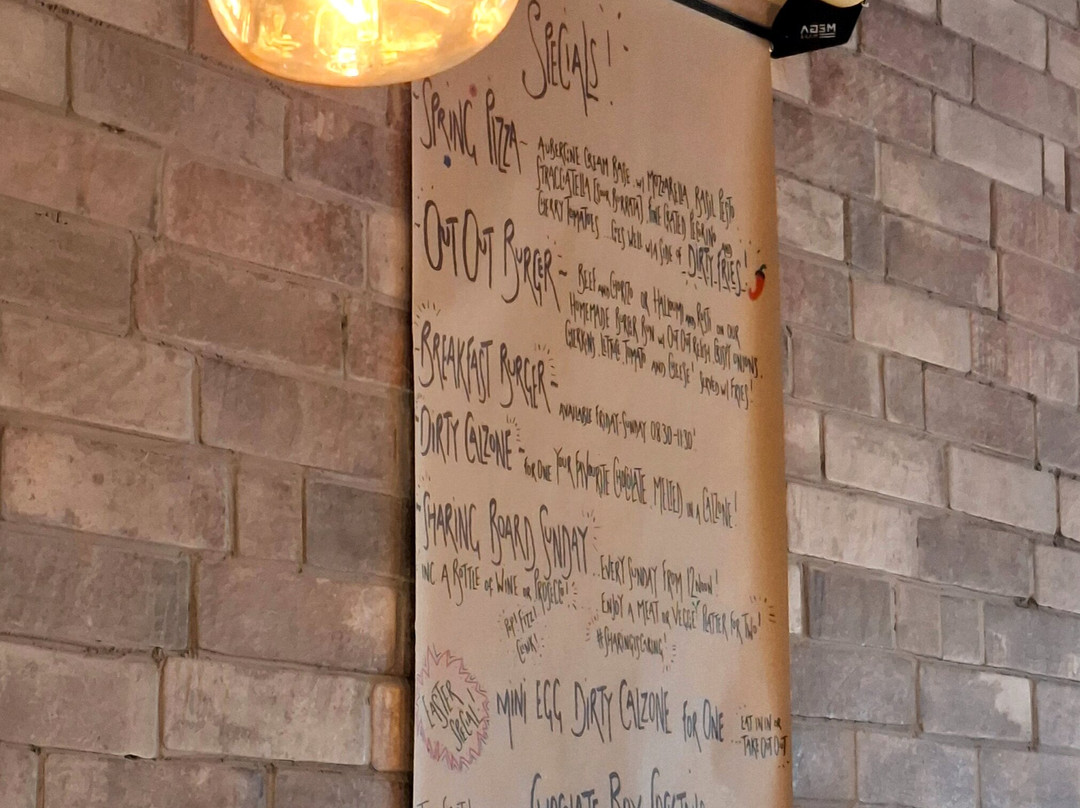 SPECIALS!
SPRING PIZZA -
AUBERGINE CREAM BASE w/ MOZZARELLA, BASIL PESTO
STRACCIATELLA (YOUR BURRATA), FINE GRATED PECORINO AND
CHERRY TOMATOES... GOES WELL w/ A SIDE OF DIRTY FRIES!
- OUT OUT BURGER -
BEEF AND CHORIZO OR HALLOUMI AND ROSTI ON OUR
HOMEMADE BURGER BUN w/ OUT OUT RELISH, CRISPY ONIONS,
GHERKINS, LETTUCE, TOMATO AND CHEESE! SERVED w/ FRIES!
- BREAKFAST BURGER -
AVAILABLE FRIDAY-SUNDAY 08.30-11.30!
- DIRTY CALZONE -
FOR ONE YOUR FAVOURITE CHOCOLATE MELTED IN A CALZONE!
- SHARING BOARD SUNDAY
... EVERY SUNDAY FROM 12NOON!
INC A BOTTLE OF WINE OR PROSECCO!
ENJOY A MEAT OR VEGGIE PLATTER FOR TWO!
POP! FIZZ!
CLINK!
#SHARINGISCARING!
EASTER
SPECIAL!
MINI EGG DIRTY CALZONE FOR ONE
EAT IN IN OR
... TAKE OUT OUT
MEGA